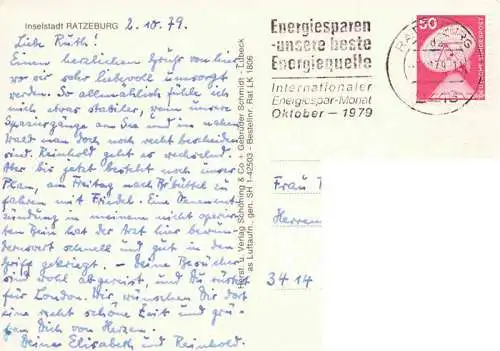 Inselstadt RATZEBURG 2.10.79.
Liebe Ruth!
Einen herzlichen Gruß von hier,
wo wir sehr liebevoll umsorgt
werden. So allmählich fühle ich
mich etwas stabiler, wenn unsere
Spaziergänge am See und im nahen
Wald man doch noch recht bescheiden
sind. Reinhold geht es wechselnd.
Aber bis jetzt besteht noch unser
Plan, am Freitag nach
fahren mit Friedel. Eine Venenent-
zündung in meinem nicht operier-
ten Bein hat der Arzt hier bewun-
dernswert schnell und gut in den
Griff gekriegt. – Deine Besucher
sind wohl abgereist, und Du rüstest
für London. Wir wünschen Dir dort
eine recht schöne Zeit und grü-
ßen Dich von Herzen.
Deine Elisabeth und Reinhold.
Horst u. Verlag Schöning & Co + Gebrüder Schmidt - Lübeck
as Luftaufn., gen. SH 1-42503 - Bestellnr. Ra LK 1806
Energiesparen
-unsere beste
Energiequelle
Internationaler
Energiespar-Monat
Oktober – 1979
50
DEUTSCHE BUNDESPOST
Frau
Herren
3414